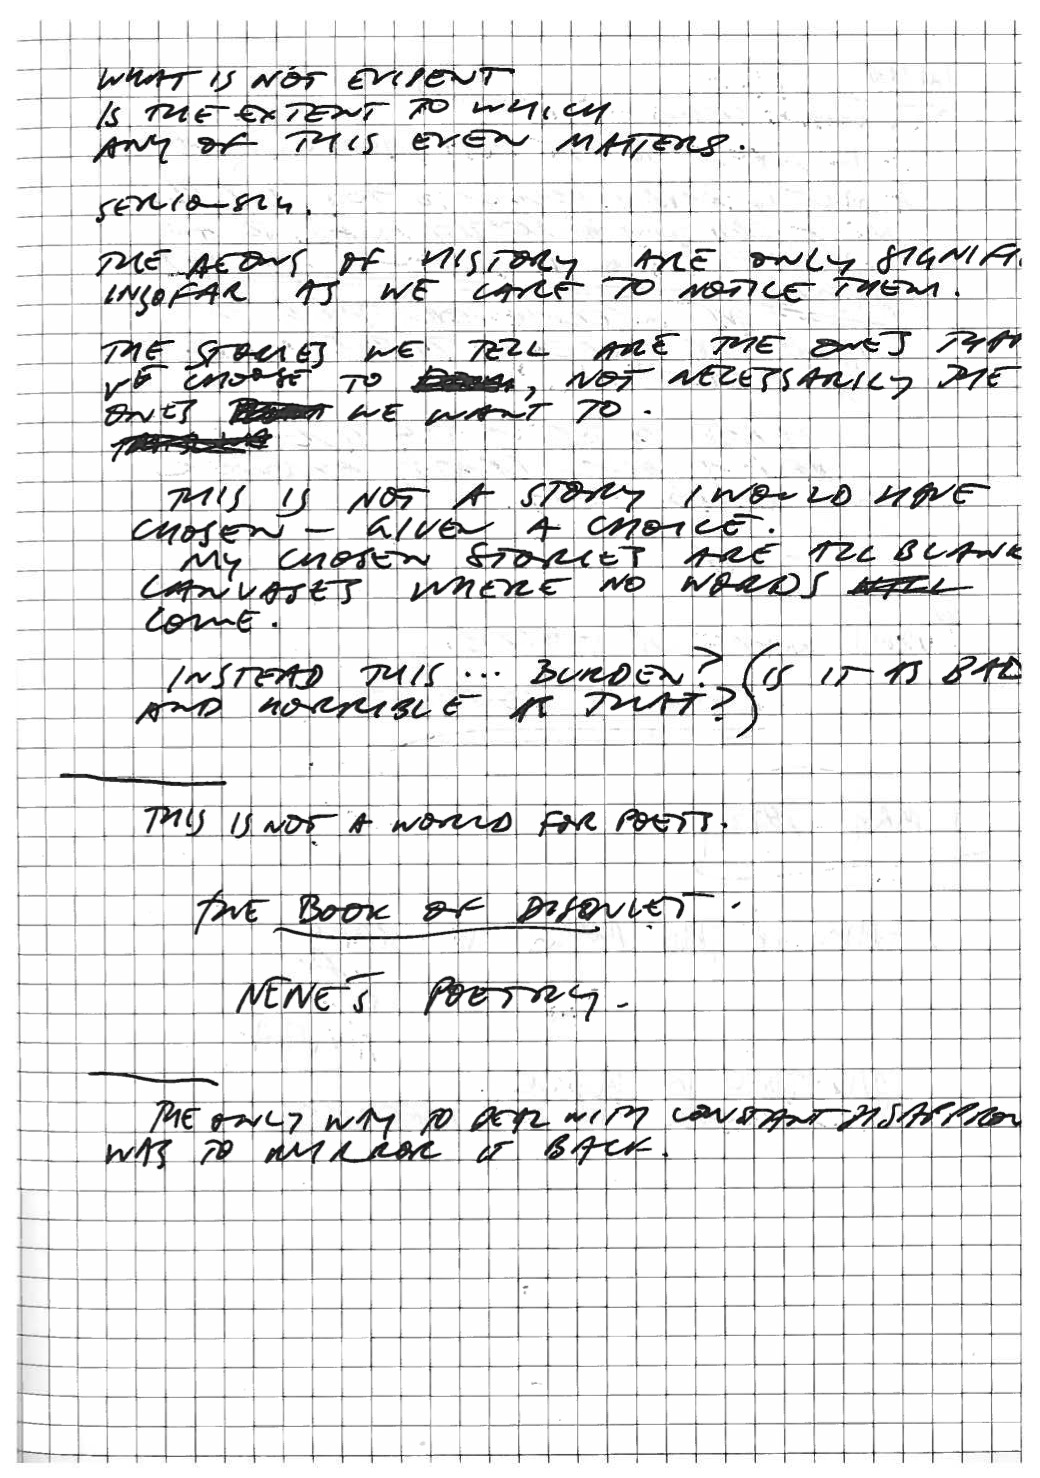 WHAT IS NOT EVIDENT
IS THE EXTENT TO WHICH
ANY OF THIS EVEN MATTERS.
SERIOUSLY.
THE AEONS OF HISTORY ARE ONLY SIGNIFI
INSOFAR AS WE CARE TO NOTICE THEM.
THE STORIES WE TELL ARE THE ONES THA
WE CHOOSE TO , NOT NECESSARILY THE
ONES WE WANT TO.
THIS IS NOT A STORY I WOULD HAVE
CHOSEN – GIVEN A CHOICE.
MY CHOSEN STORIES ARE ALL BLANK
CANVASES WHERE NO WORDS WILL
COME.
INSTEAD THIS ... BURDEN? (IS IT AS BAD
AND HORRIBLE AS THAT?)
THIS IS NOT A WORLD FOR POETS.
THE BOOK OF DISQUIET.
NENE'S POETRY.
THE ONLY WAY TO DEAL WITH CONSTANT DISAPPROV
WAS TO MIRROR IT BACK.